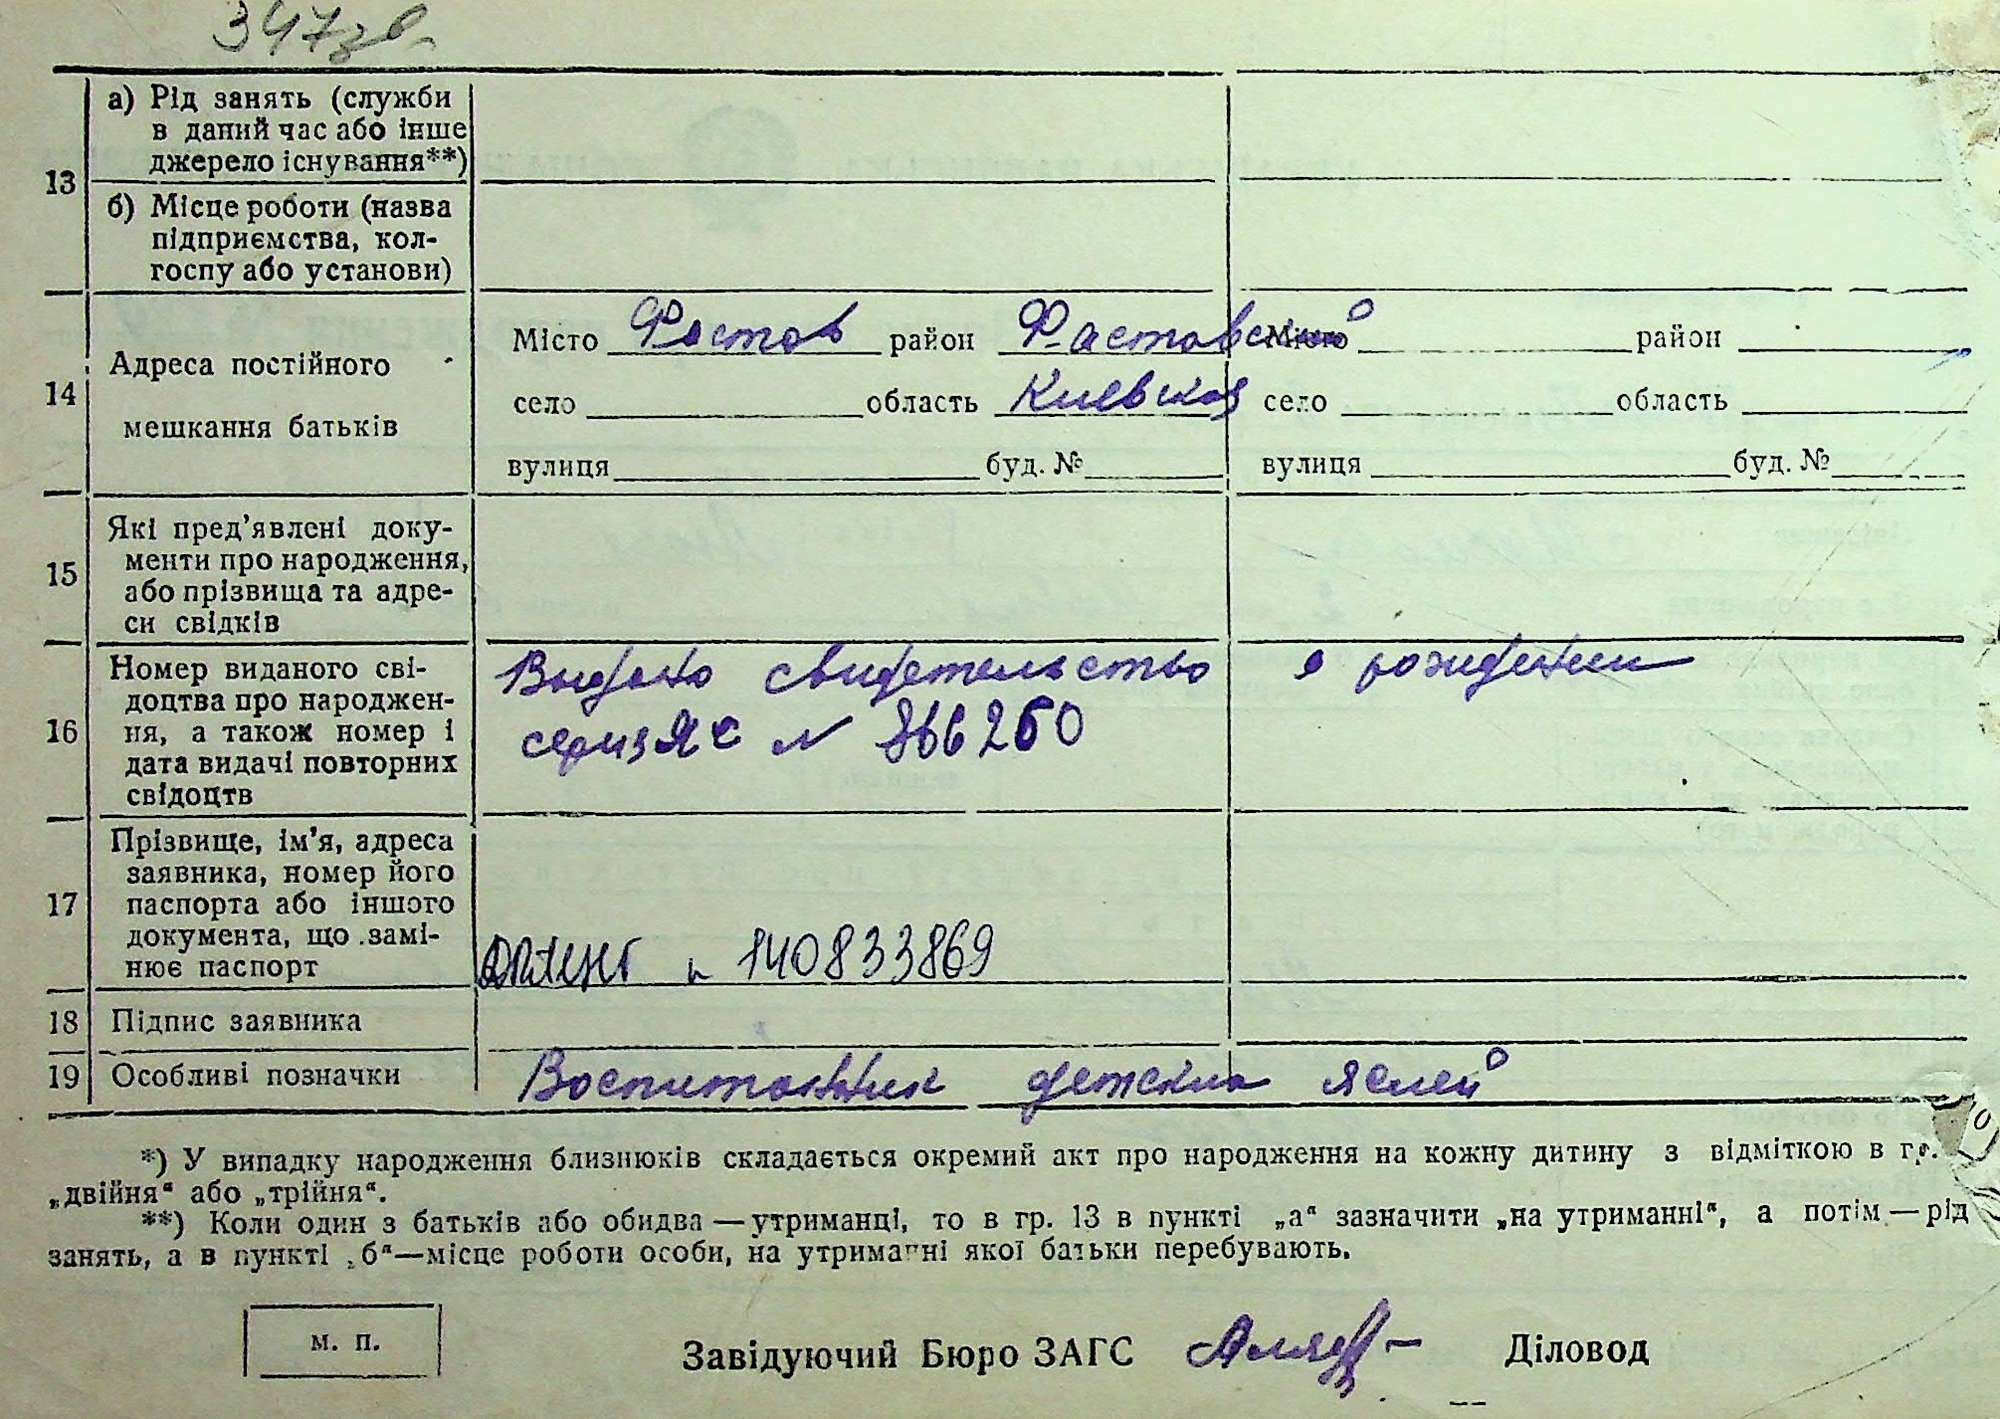 347
13
а) Рід занять (служби
в даний час або інше
джерело існування**)
б) Місце роботи (назва
підприємства, кол-
госпу або установи)
14
Адреса постійного
мешкання батьків
Місто Фастов район Фастовской Місто район
село область Киевская село область
вулиця буд. № вулиця буд. №
15
Які пред'явлені доку-
менти про народження,
або прізвища та адре-
си свідків
16
Номер виданого сві-
доцтва про народжен-
ня, а також номер і
дата видачі повторних
свідоцтв
Выдано свидетельство о рождении
серия ЯС N 366260
17
Прізвище, ім'я, адреса
заявника, номер його
паспорта або іншого
документа, що замі-
нює паспорт
N 140833869
18
Підпис заявника
19
Особливі позначки
Воспитанник детских яслей
*) У випадку народження близнюків складається окремий акт про народження на кожну дитину з відміткою в гр.
„двійня“ або „трійня“.
**) Коли один з батьків або обидва — утриманці, то в гр. 13 в пункті „а“ зазначити „на утриманні“, а потім — рід
занять, а в пункті „б“—місце роботи особи, на утриманні якої батьки перебувають.
м. п.
Завідуючий Бюро ЗАГС Діловод